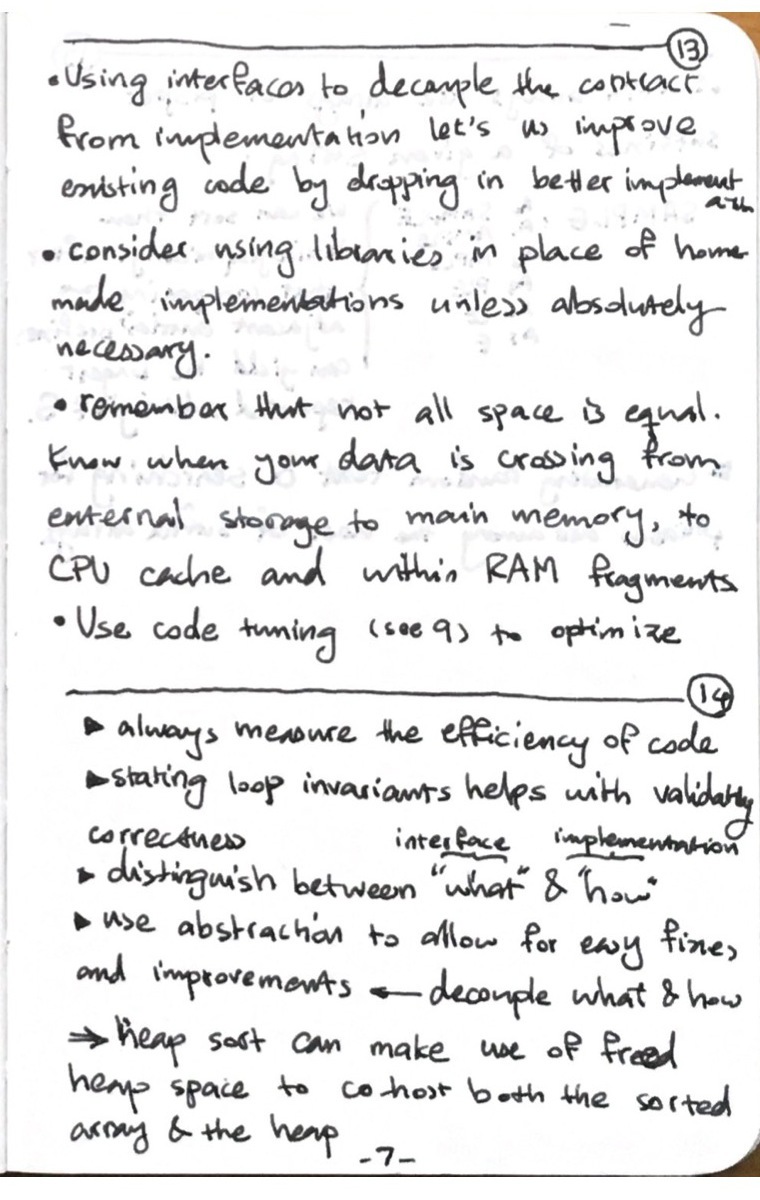 13
• Using interfaces to decouple the contract
from implementation let's us improve
existing code by dropping in better implement
• consider using libraries in place of home
made implementations unless absolutely
necessary.
• remember that not all space is equal.
Know when your data is crossing from
external storage to main memory, to
CPU cache and within RAM fragments
• Use code tuning (see 9) to optimize
14
▶ always measure the efficiency of code
▶ stating loop invariants helps with validating
correctness interface implementation
▶ distinguish between "what" & "how"
▶ use abstraction to allow for easy fixes
and improvements ← decouple what & how
⇒ heap sort can make use of freed
heap space to co-host both the sorted
array & the heap
-7-